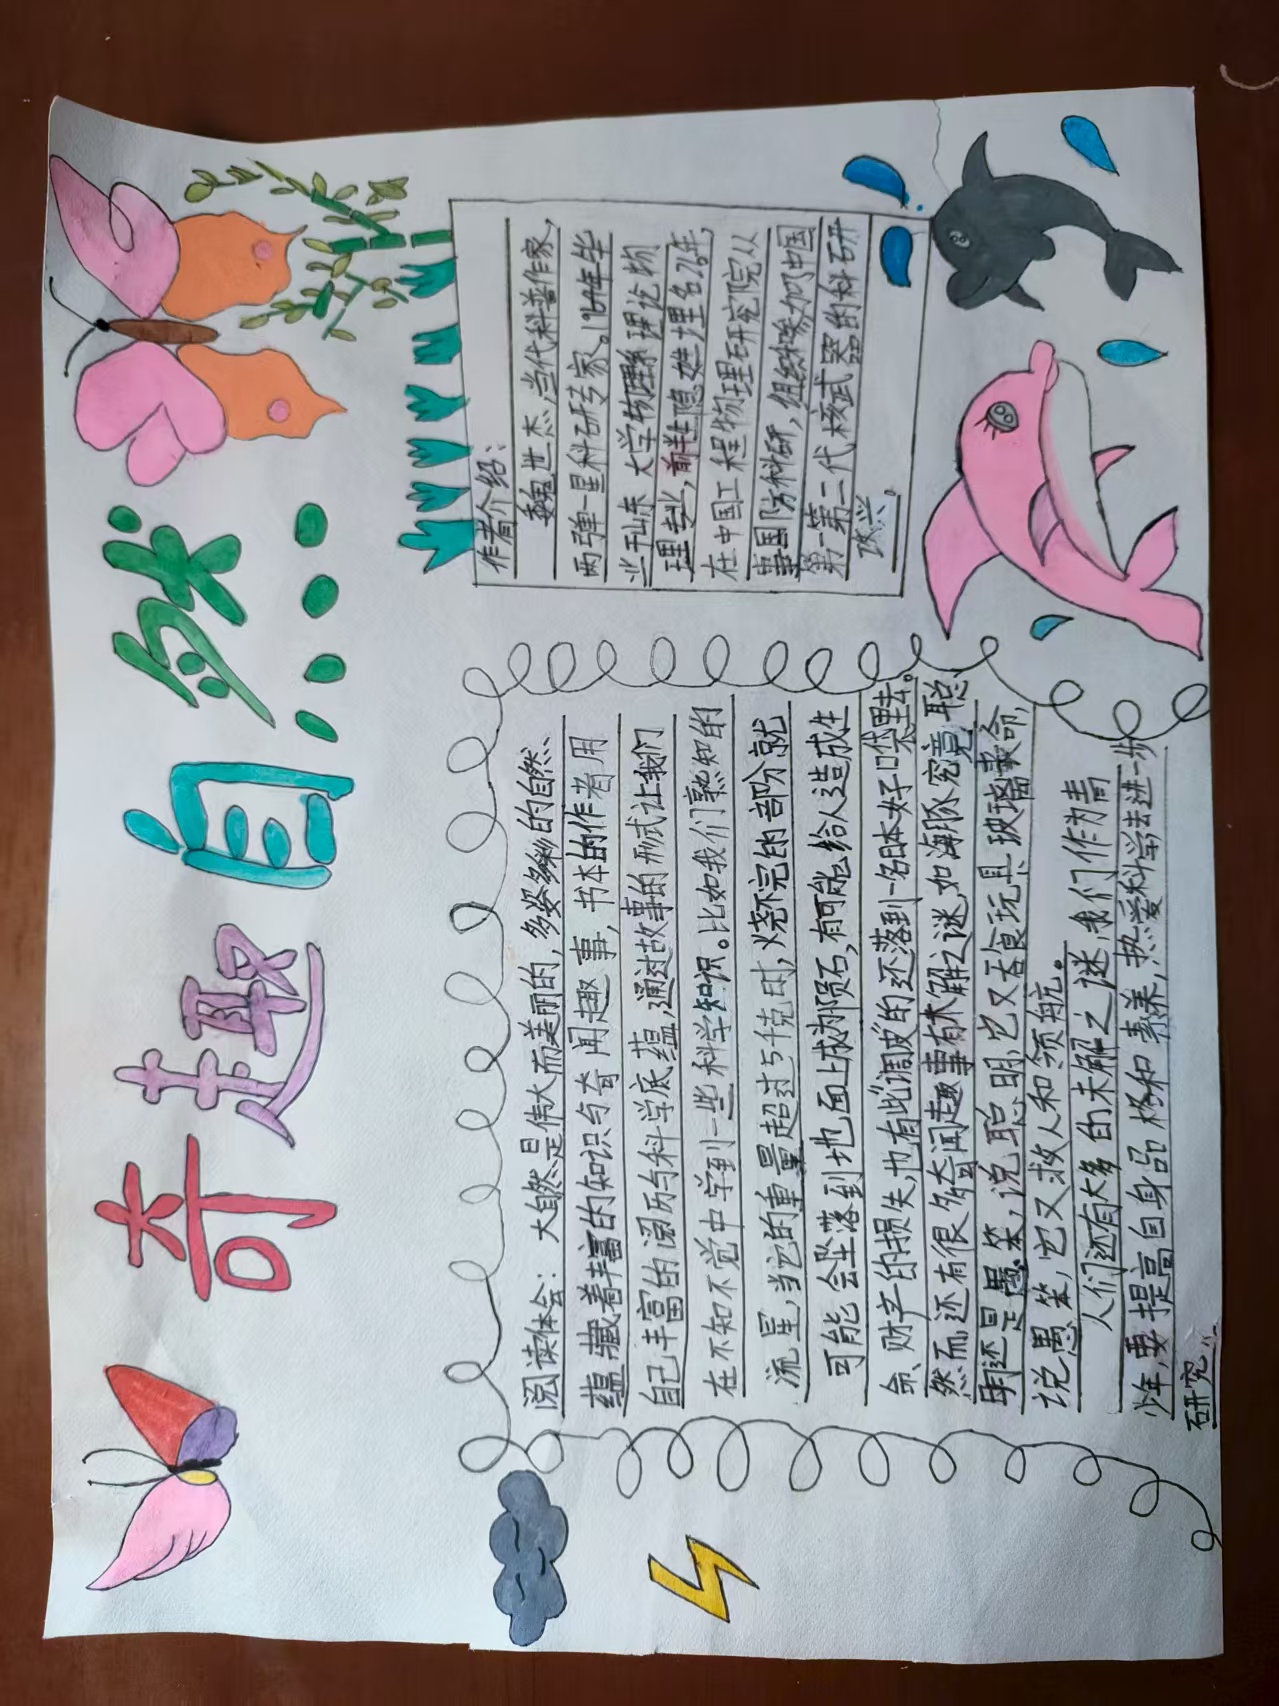 奇趣自然
阅读体会：大自然是伟大而美丽的，多姿多彩的自然
蕴藏着丰富的知识与奇闻趣事，书本的作者用
自己丰富的阅历与科学底蕴，通过故事的形式让我们
在不知不觉中学到一些科学知识。比如我们熟知的
流星，当它的重量超过5千克时，烧不完的部分就
可能会坠落到地面上成为陨石，有可能给人造成生
命、财产的损失，也有些调皮的还落到一名日本好口袋里去。
然而还有很多奇闻趣事有木解之谜，如海豚究竟聪
明还是愚笨，说聪明它又吞食玩具玻璃丧命，
说愚笨，它又救人和领航。
人们还有太多的未解之谜，我们作为青
少年，要提高自身品格和素养，热爱科学去进一步
研究。
作者介绍：
魏世杰，当代科普作家，
两弹一星科研专家。1964年毕
业于山东大学物理系理论物
理专业，前半生隐姓埋名26年，
在中国工程物理研究院从
事国防科研，组织参加了中国
第一第二代核武器的科研
攻关。